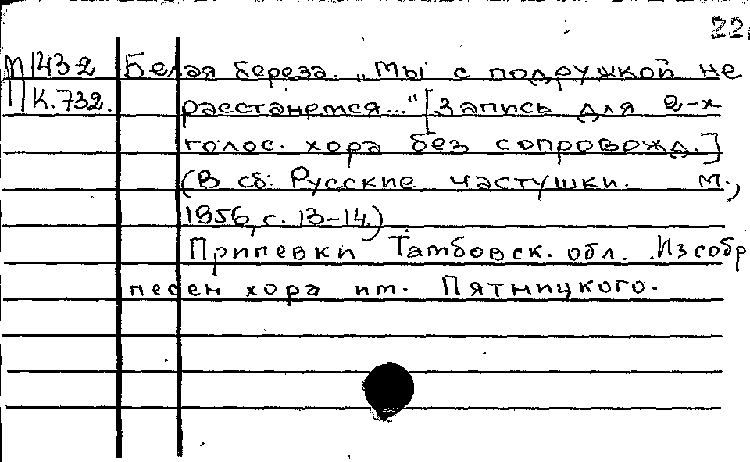 22
П 1432 Белая береза. „Мы с подружкой не
К.732. расстанемся..." [Запись для 2-х
голос. хора без сопровожд.]
(В сб: Русские частушки. М.,
1956, с. 13-14.)
Припевки Тамбовск. обл. Из собр
песен хора им. Пятницкого.